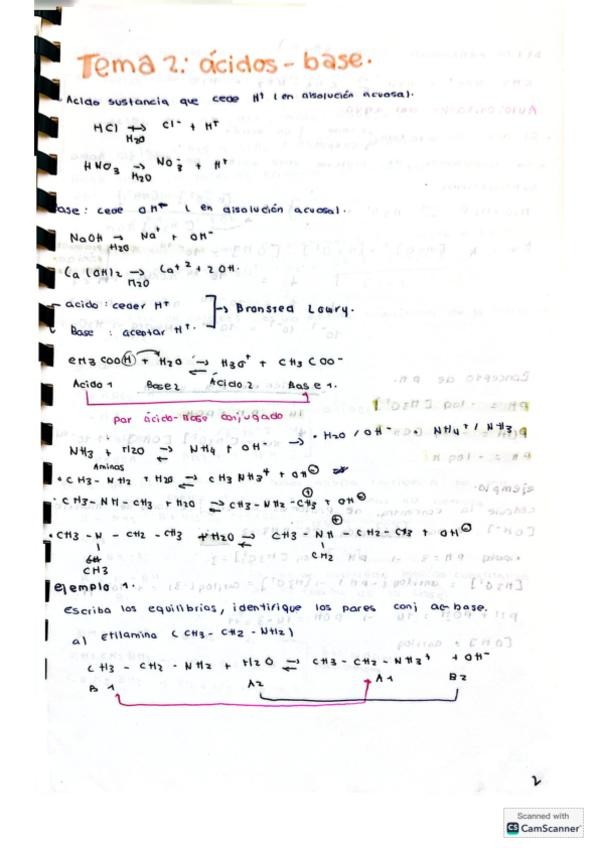 Tema 2: ácidos - base.
- Acido sustancia que cede H+ ( en disolución acuosa).
HCl ↔ Cl- + H+
H2O
HNO3 → NO3- + H+
H2O
ase: cede OH- ( en disolución acuosa).
NaOH → Na+ + OH-
H2O
Ca(OH)2 → Ca+2 + 2OH-
H2O
- acido: ceder H+
Base : aceptar H+.
→ Bronsted Lowry.
CH3COOH + H2O ⇄ H3O+ + CH3COO-
Acido 1 Base 2 Ácido 2 Base 1.
par ácido-base conjugado
NH3 + H2O ⇄ NH4 + OH- → · H2O / OH- · NH4+ / NH3
Aminas
· CH3 - NH2 + H2O ⇄ CH3NH3+ + OH⊖
· CH3 - NH - CH3 + H2O ⇄ CH3 - NH2 - CH3 ⊕ + OH⊖
· CH3 - N - CH2 - CH3 + H2O ⇄ CH3 - NH ⊕ - CH2 - CH3 + OH⊖
CH3
CH2
ejemplo 1.
escriba los equilibrios, identifique los pares conj ac-base.
a) etilamina ( CH3 - CH2 - NH2)
CH3 - CH2 - NH2 + H2O ⇄ CH3 - CH2 - NH3+ + OH-
B 1 A2 A1 B2
2
Scanned with
CS CamScanner